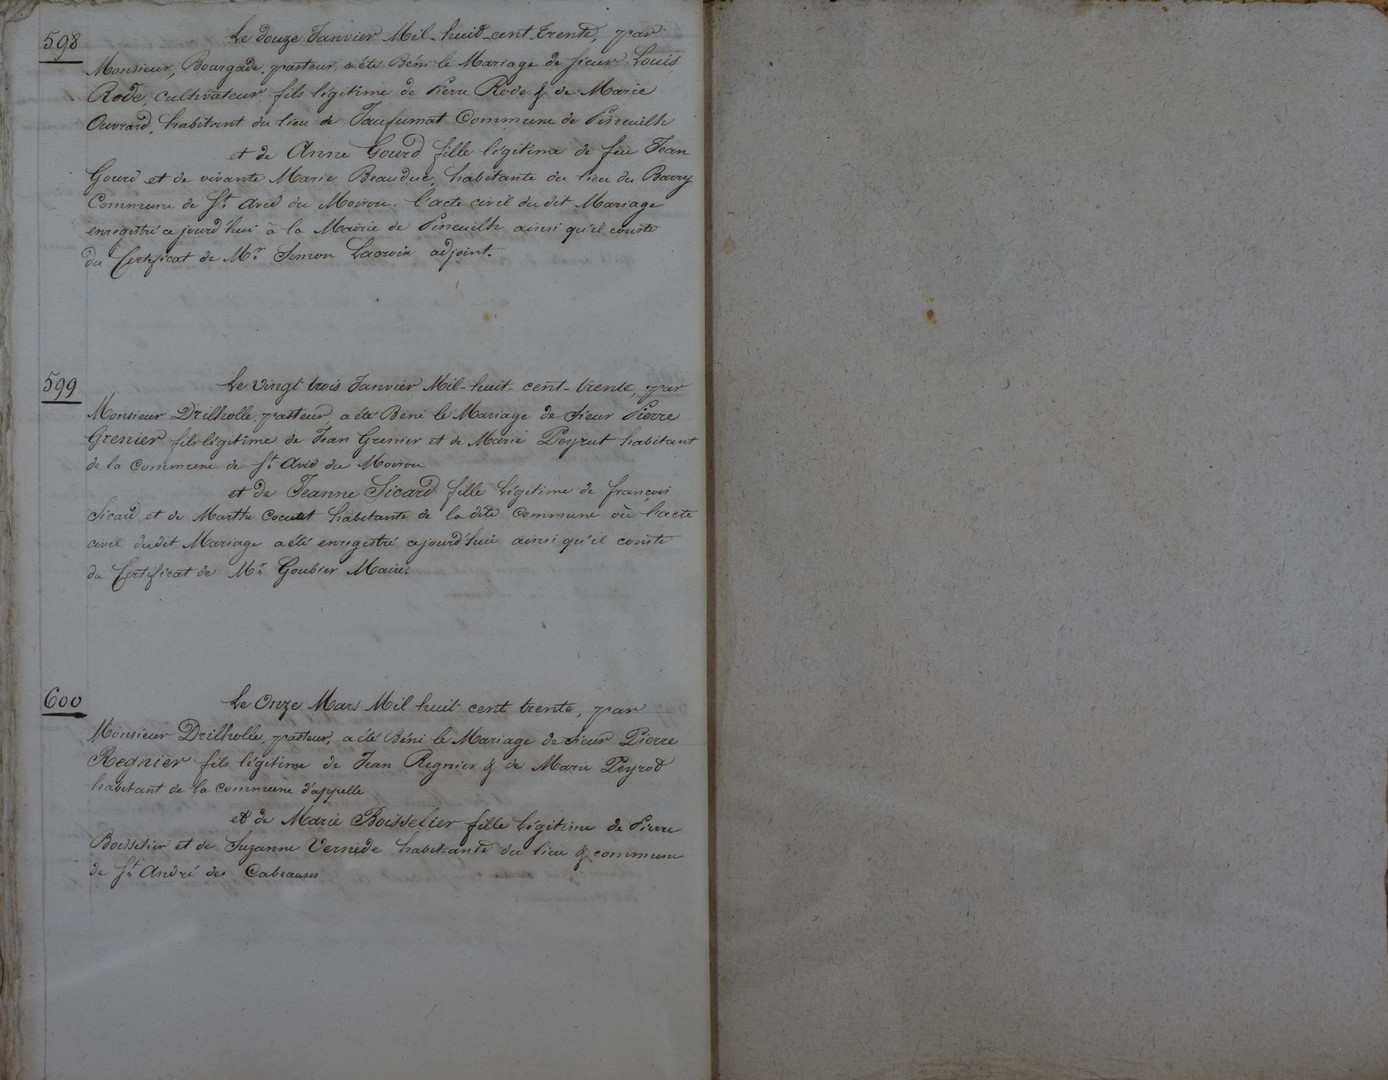 598
Le douze Janvier Mil-huit-cent-trente, par
Monsieur, Bourgade, pasteur, a été Béni le Mariage de sieur Louis
Rode, cultivateur, fils légitime de Pierre Rode & de Marie
Ouvrard, habitant du lieu de Jaufumat Commune de Pineuilh
et de Anne Gourd fille légitime de feu Jean
Gourd et de vivante Marie Beauduc, habitante du lieu du Barry
Commune de St. Avid du Moiron. l'acte civil du dit Mariage
enregistré ce jourd'hui à la Mairie de Pineuilh ainsi qu'il conste
du Certificat de Mr. Simon Lacroix adjoint.
599
Le vingt trois Janvier Mil-huit-cent-trente, par
Monsieur Drilholle, pasteur, a été Béni le Mariage de sieur Pierre
Grenier fils légitime de Jean Grenier et de Marie Peyrut habitant
de la Commune de St. Avid du Moirou
et de Jeanne Sicard fille légitime de françois
Sicard et de Marthe habitante de la dite Commune où l'acte
civil dudit Mariage a été enregistré cejourd'hui ainsi qu'il conste
du Certificat de Mr. Goubier Maire.
600
Le Onze Mars Mil huit cent trente, par
Monsieur Drilholle, pasteur, a été Béni le Mariage de sieur Pierre
Regnier fils légitime de Jean Regnier & de Marie Peyrod
habitant de la Commune d'appelle
et de Marie Boisselier fille légitime de Pierre
Boisselier et de Suzanne Vernide habitante du lieu & commune
de St. André des Cabeauses